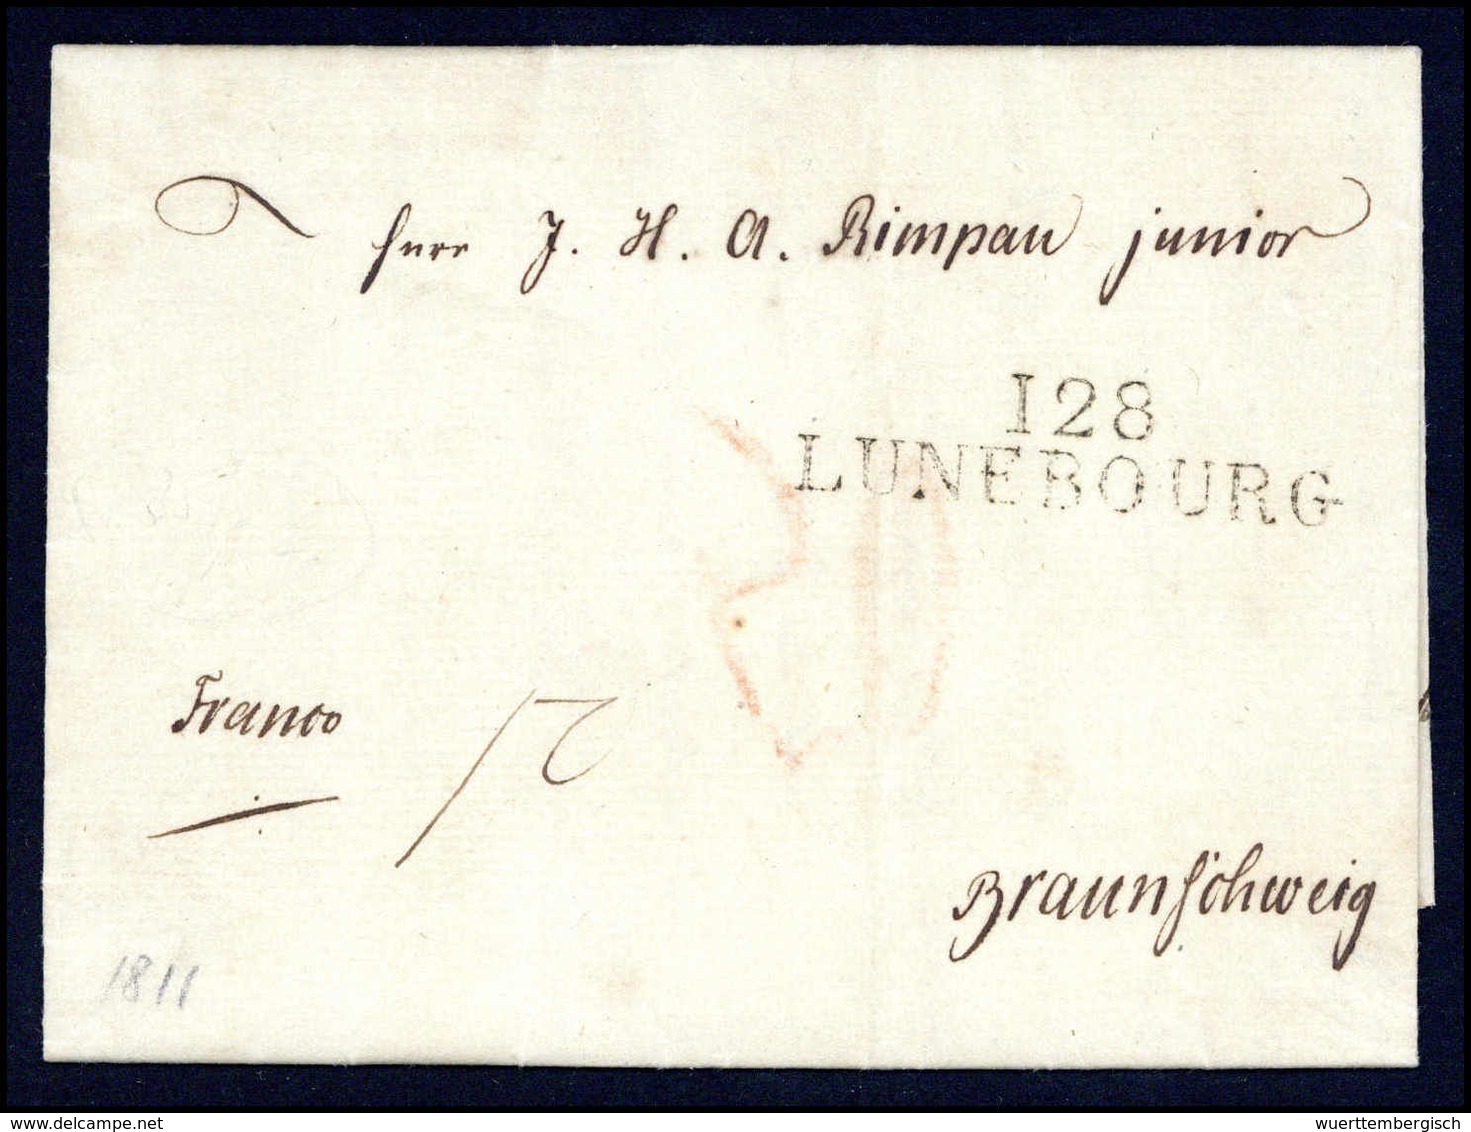 Herr J. H. A. Rimpau junior
128
LUNEBOURG
Franco
Braunschweig
1811
wuerttembergisch